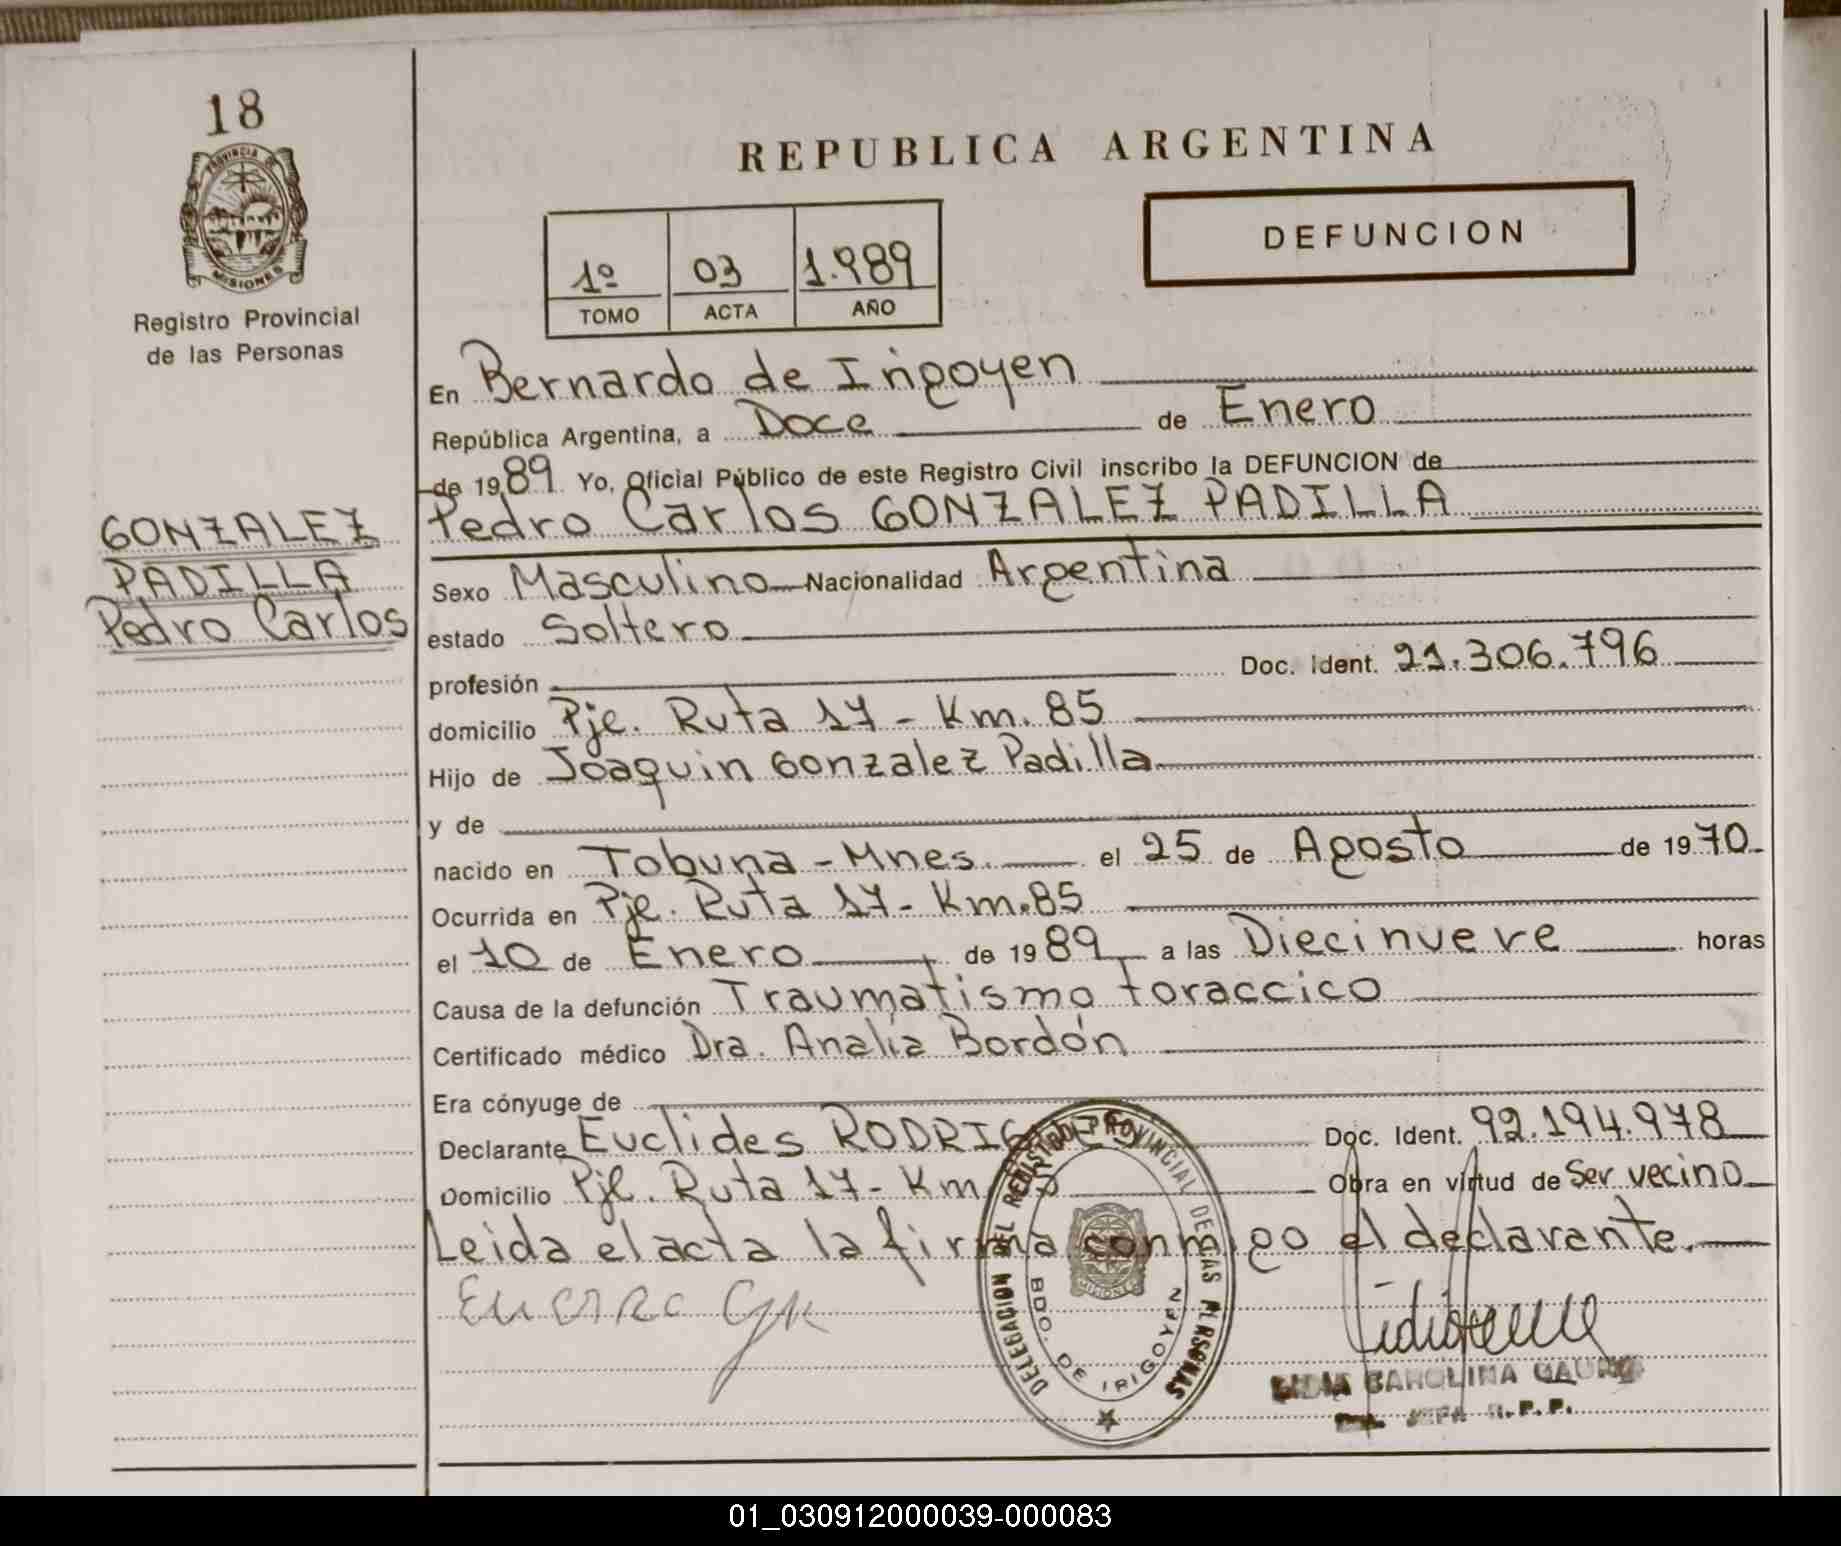 18
PROVINCIA DE
MISIONES
Registro Provincial
de las Personas
REPUBLICA ARGENTINA
DEFUNCION
1º 03 1.989
TOMO ACTA AÑO
En Bernardo de Irigoyen
República Argentina, a Doce de Enero
de 1989 Yo, Oficial Público de este Registro Civil inscribo la DEFUNCION de
GONZALEZ
PADILLA
Pedro Carlos
Pedro Carlos GONZALEZ PADILLA
Sexo Masculino Nacionalidad Argentina
estado Soltero
profesión Doc. Ident. 21.306.796
domicilio Pje. Ruta 17 - Km. 85
Hijo de Joaquin Gonzalez Padilla
y de
nacido en Tobuna - Mnes. el 25 de Agosto de 1970
Ocurrida en Pje. Ruta 17 - Km. 85
el 10 de Enero de 1989 a las Diecinueve horas
Causa de la defunción Traumatismo toraccico
Certificado médico Dra. Analía Bordón
Era cónyuge de
Declarante Euclides RODRIGUES Doc. Ident. 92.194.978
Domicilio Pje. Ruta 17 - Km Obra en virtud de Ser vecino
Leida el acta la firma conmigo el declarante.
DELEGACION DEL REGISTRO PROVINCIAL DE LAS PERSONAS
BDO. DE IRIGOYEN
MISIONES
CAROLINA
JEFA R.P.P.
01_030912000039-000083